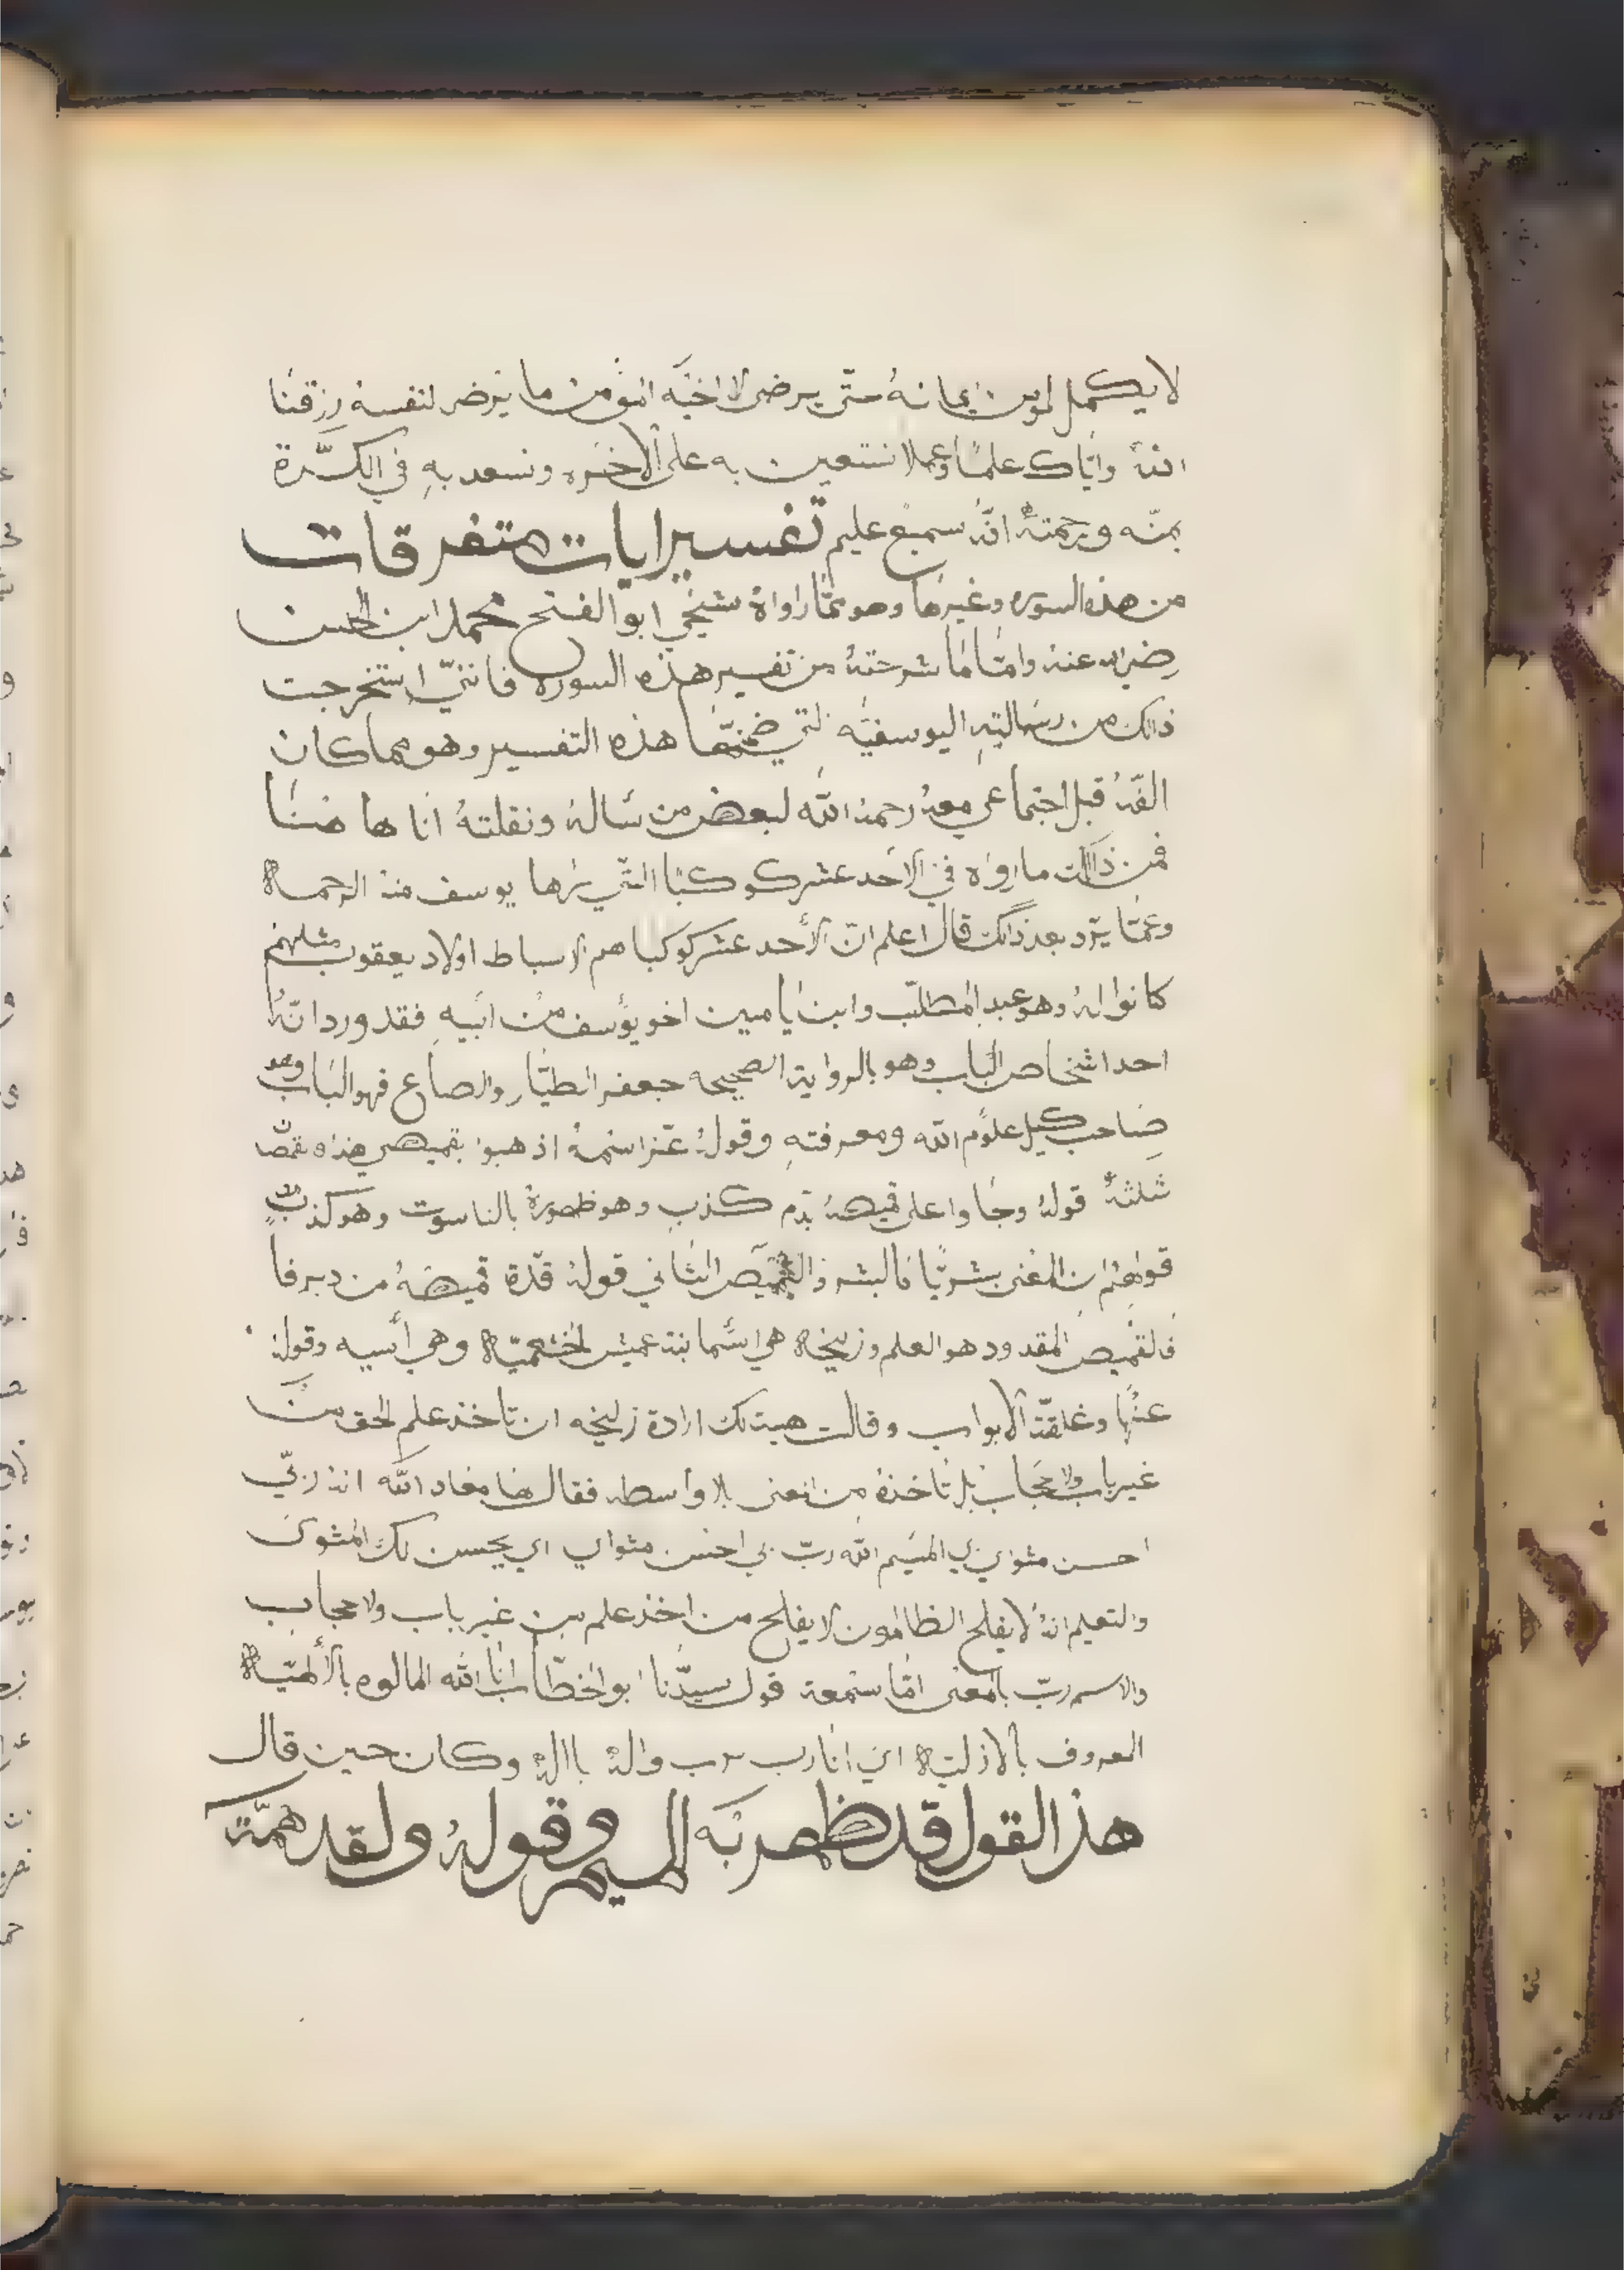 لايكمل لمومن ايمانهُ حتّى يرضى لاخيّه المؤمن ما يرضى لنفسه رزقنا
اللهُ وايّاك علمًا وعملا نستعين به على الاخره ونسعد بهِ في الكرّة
بمنّه ورحمتهُ انّهُ سميع عليم تفسير ايات متفرقات
من هذه السوره وغيرها وهو ممّا رواهُ شيخي ابو الفتح محمد ابن الحسن
رضي الله عنهُ وامّا ما شرحتهُ من تفسير هذه السوره فانّني استخرجت
ذالك من رسالتهِ اليوسفيّه التي ضمنّها هذه التفسير وهو مما كان
الفّهُ قبل اجتماعي معهُ رحمهُ الله لبعض من سالهُ ونقلتهُ انا ها هنا
فمن ذالك ما رواه في الاحد عشر كوكبًا التّي يرها يوسف منهُ الرحمه
وممّا يرد بعد ذالك قال اعلم انّ الأحد عشر كوكبا هم الاسباط اولاد يعقوب مثلهم
كانوا لهُ وهو عبد المطلّب وابن ياامين اخو يوسف من ابيهِ فقد ورد انّهُ
احد اشخاص الباب وهو بالرواية الصحيحه جعفر الطيّار والصاع فهو الباب وهو
صاحب كيل علوم الله ومعرفتهِ وقولهُ عزّ اسمهُ اذهبو بقميصي هذا
ثلثهُ قولهُ وجاوا على قميصهُ بدم كذب وهو ظهورهُ بالناسوت وهو كذب
قولهم ان المعنى بشريًا فالبشر والقميص الثاني قولهُ قدّة قميصهُ من دبر فا
فالقميص المقدود هو العلم وزليخه هي اسما بنة عميس الخثعميّه وهي أسيه وقولهُ
عنها وغلقّة الابواب وقالت هيت لك ارادة زليخه ان تاخذ علم الحق من
غير باب ولا حجاب بل تاخذهُ من المعنى بلا واسطه فقال لها معاد الله انهُ ربّي
احسن مثواي بي الميم الله ربّ بي احسن مثواي اي يحسن لك المثوى
والتعليم انهُ لا يفلح الظالمون لا يفلح من اخذ علم من غير باب ولا حجاب
والاسم ربّ بالمعنى امّا سمعة قول سيدّنا ابو الخطّاب انا الله المالوه بالألهيّه
المعروف بالازليّه اي انا رب برب واله باله وكان حين قال
هذا القول قد ظهر به الميم وقولهُ ولقد همّة